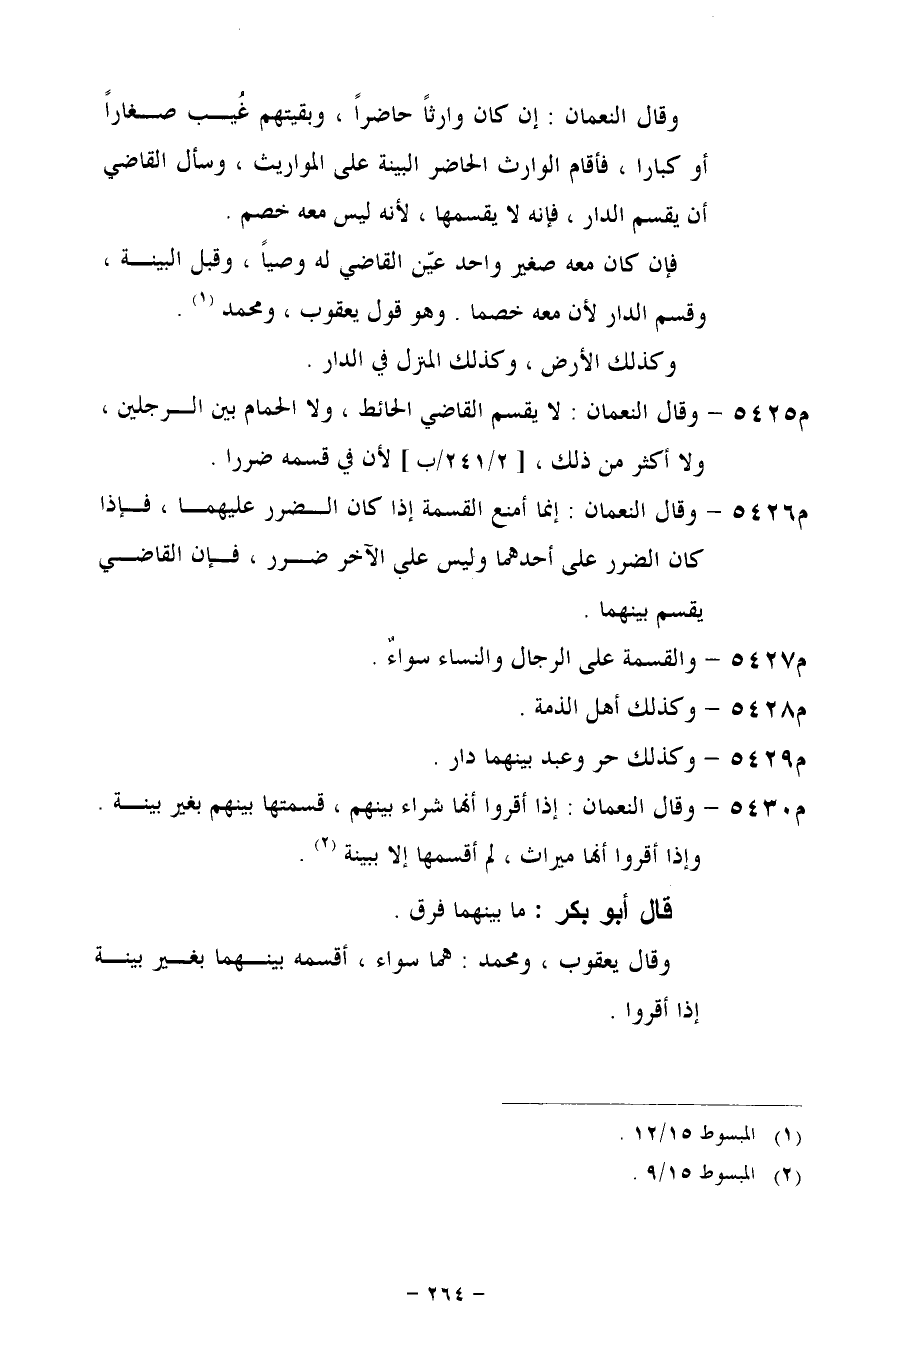 وقال النعمان : إن كان وارثاً حاضراً ، وبقيتهم غُيب صغاراً
أو كبارا ، فأقام الوارث الحاضر البينة على المواريث ، وسأل القاضي
أن يقسم الدار ، فإنه لا يقسمها ، لأنه ليس معه خصم .
فإن كان معه صغير واحد عيّن القاضي له وصياً ، وقبل البينة ،
وقسم الدار لأن معه خصما . وهو قول يعقوب ، ومحمد (١) .
وكذلك الأرض ، وكذلك المنزل في الدار .
م٥٤٢٥ – وقال النعمان : لا يقسم القاضي الحائط ، ولا الحمام بين الرجلين ،
ولا أكثر من ذلك ، [ ٢/٢٤١/ب ] لأن في قسمه ضررا .
م٥٤٢٦ – وقال النعمان : إنما أمنع القسمة إذا كان الضرر عليهما ، فإذا
كان الضرر على أحدهما وليس على الآخر ضرر ، فإن القاضي
يقسم بينهما .
م٥٤٢٧ – والقسمة على الرجال والنساء سواءٌ .
م٥٤٢٨ – وكذلك أهل الذمة .
م٥٤٢٩ – وكذلك حر وعبد بينهما دار .
م٥٤٣٠ – وقال النعمان : إذا أقروا أنها شراء بينهم ، قسمتها بينهم بغير بينة .
وإذا أقروا أنها ميراث ، لم أقسمها إلا ببينة (٢) .
قال أبو بكر : ما بينهما فرق .
وقال يعقوب ، ومحمد : هما سواء ، أقسمه بينهما بغير بينة
إذا أقروا .
(١) المبسوط ١٢/١٥ .
(٢) المبسوط ٩/١٥ .
– ٢٦٤ –